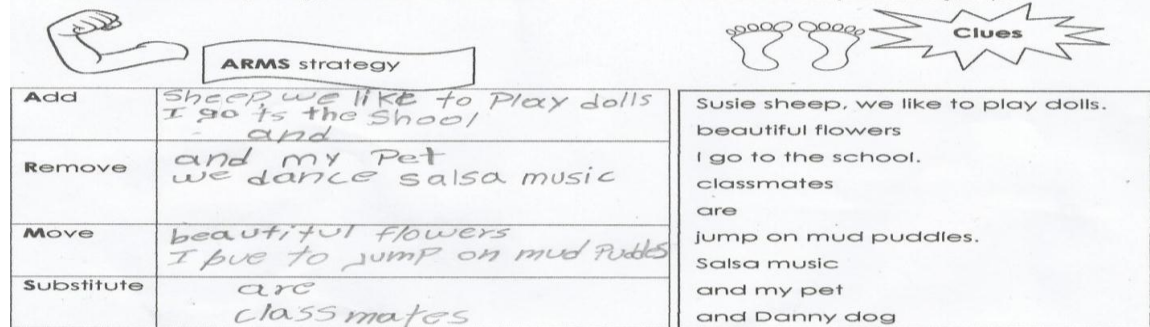 ARMS strategy
Clues
Add
Sheep, we like to Play dolls
I go to the Shool
and
Remove
and my Pet
we dance salsa music
Move
beautiful flowers
I to jump on mud Puddles
Substitute
are
classmates
Susie sheep, we like to play dolls.
beautiful flowers
I go to the school.
classmates
are
jump on mud puddles.
Salsa music
and my pet
and Danny dog